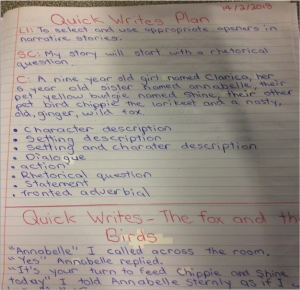 14/2/2013
Quick Writes Plan
LI: To select and use appropriate openers in
narrative stories.
SC: My story will start with a rhetorical
question.
C: A nine year old girl named Clarica, her
year old sister named annabelle, their
pet yellow budgie named Shine, their other
pet bird chippie the lorikeet and a nasty,
old, ginger, wild fox.
• Character description
• Setting description
• Setting and charater description
• Dialogue
• action
• Rhetorical question
• Statement
• fronted adverbial
Quick Writes - The fox and th
Birds
"Annabelle" I called across the room.
"Yes" Annabelle replied.
"It's your turn to feed Chippie and Shine
today" I told Annabelle sternly as if I